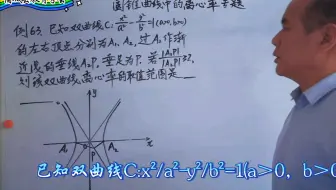 圆锥曲线中的离心率专题
例63. 已知双曲线C: x²/a² - y²/b² =1(a>0, b>0)
的左右顶点分别为A₁, A₂, 过A₁作渐
近线的垂线A₁P, 垂足为P. 若|A₂P|/|A₁P|≥2,
则该双曲线离心率的取值范围是
y
A₁
O
A₂
x
P
已知双曲线C:x²/a²-y²/b²=1(a＞0，b＞0